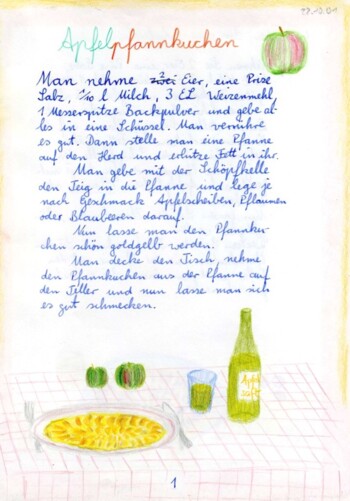 Apfelpfannkuchen
Man nehme zwei Eier, eine Prise
Salz, 1/10 l Milch, 3 EL Weizenmehl,
1 Messerspitze Backpulver und gebe al-
les in eine Schüssel. Man verrühre
es gut. Dann stelle man eine Pfanne
auf den Herd und erhitze Fett in ihr.
Man gebe mit der Schöpfkelle
den Teig in die Pfanne und lege je
nach Geschmack Apfelscheiben, Pflaumen
oder Blaubeeren darauf.
Nun lasse man den Pfannku-
chen schön goldgelb werden.
Man decke den Tisch, nehme
den Pfannkuchen aus der Pfanne auf
den Teller und nun lasse man sich
es gut schmecken.
Apfel
saft
1